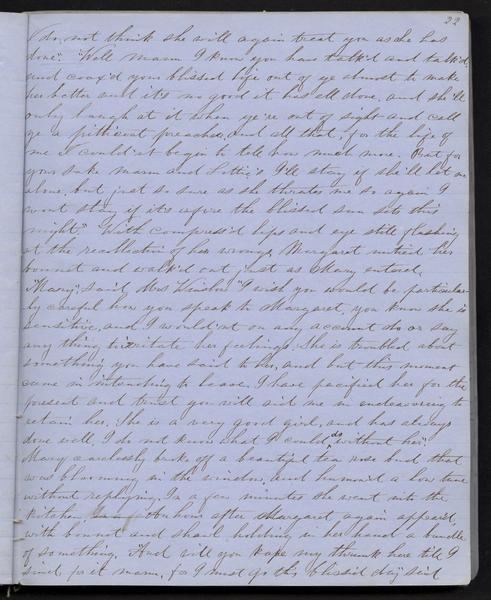 22
I do not think she will again treat you as she has
done". "Well marm I know you have talk'd and talk'd,
and coax'd your blissed life out of ye almost to make
her better and it's no good it has all done, and she'll
only laugh at it when ye're out of sight and call
ye a pitticoat preacher, and all that, for the life of
me I could'nt begin to tell how much more. But for
your sake marm and Lottie's I'll stay if she'll let me
alone, but just so sure as she thrates me so again I
wont stay if it's afore the blissed sun sets this
night." With compress'd lips and eye still flashing
at the recollection of her wrongs, Margaret untied her
bonnet and walk'd out just as Mary entered.
"Mary," said Mrs "I wish you would be particular-
ly careful how you speak to Margaret, you know she is
sensitive, and I would not on any account do or say
any thing to irritate her feelings. She is troubled about
something you have said to her, and but this moment
came in intending to leave. I have pacified her for the
present and trust you will aid me in endeavoring to
retain her. She is a very good girl, and has always
done well, I do not know what I could do without her."
Mary carelessly broke off a beautiful tea rose bud that
was blooming in the window, and humm'd a low tune
without replying. In a few minutes she went into the
kitchen, hour after Margaret again appear'd,
with bonnet and shawl holding in her hand a bundle
of something, "And will you kape my thrunk here till I
sind for it marm, for I must go this blissid day" said